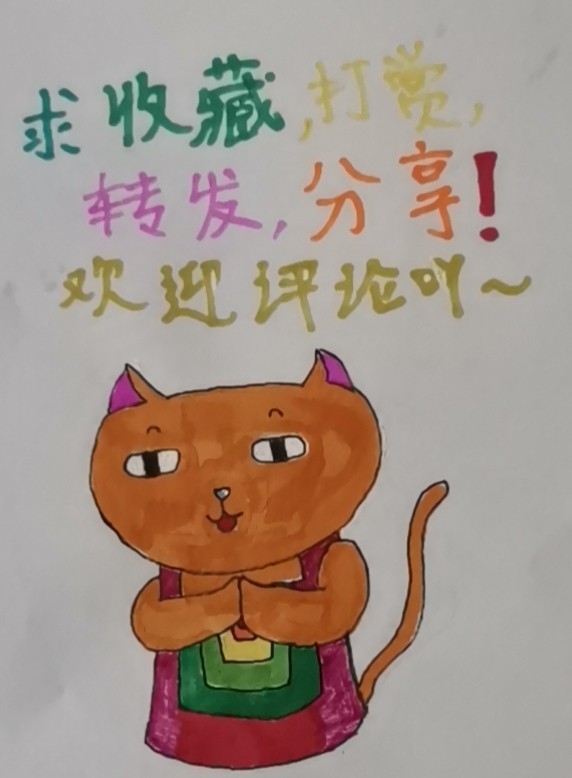 求收藏,打赏,
转发,分享!
欢迎评论吖~